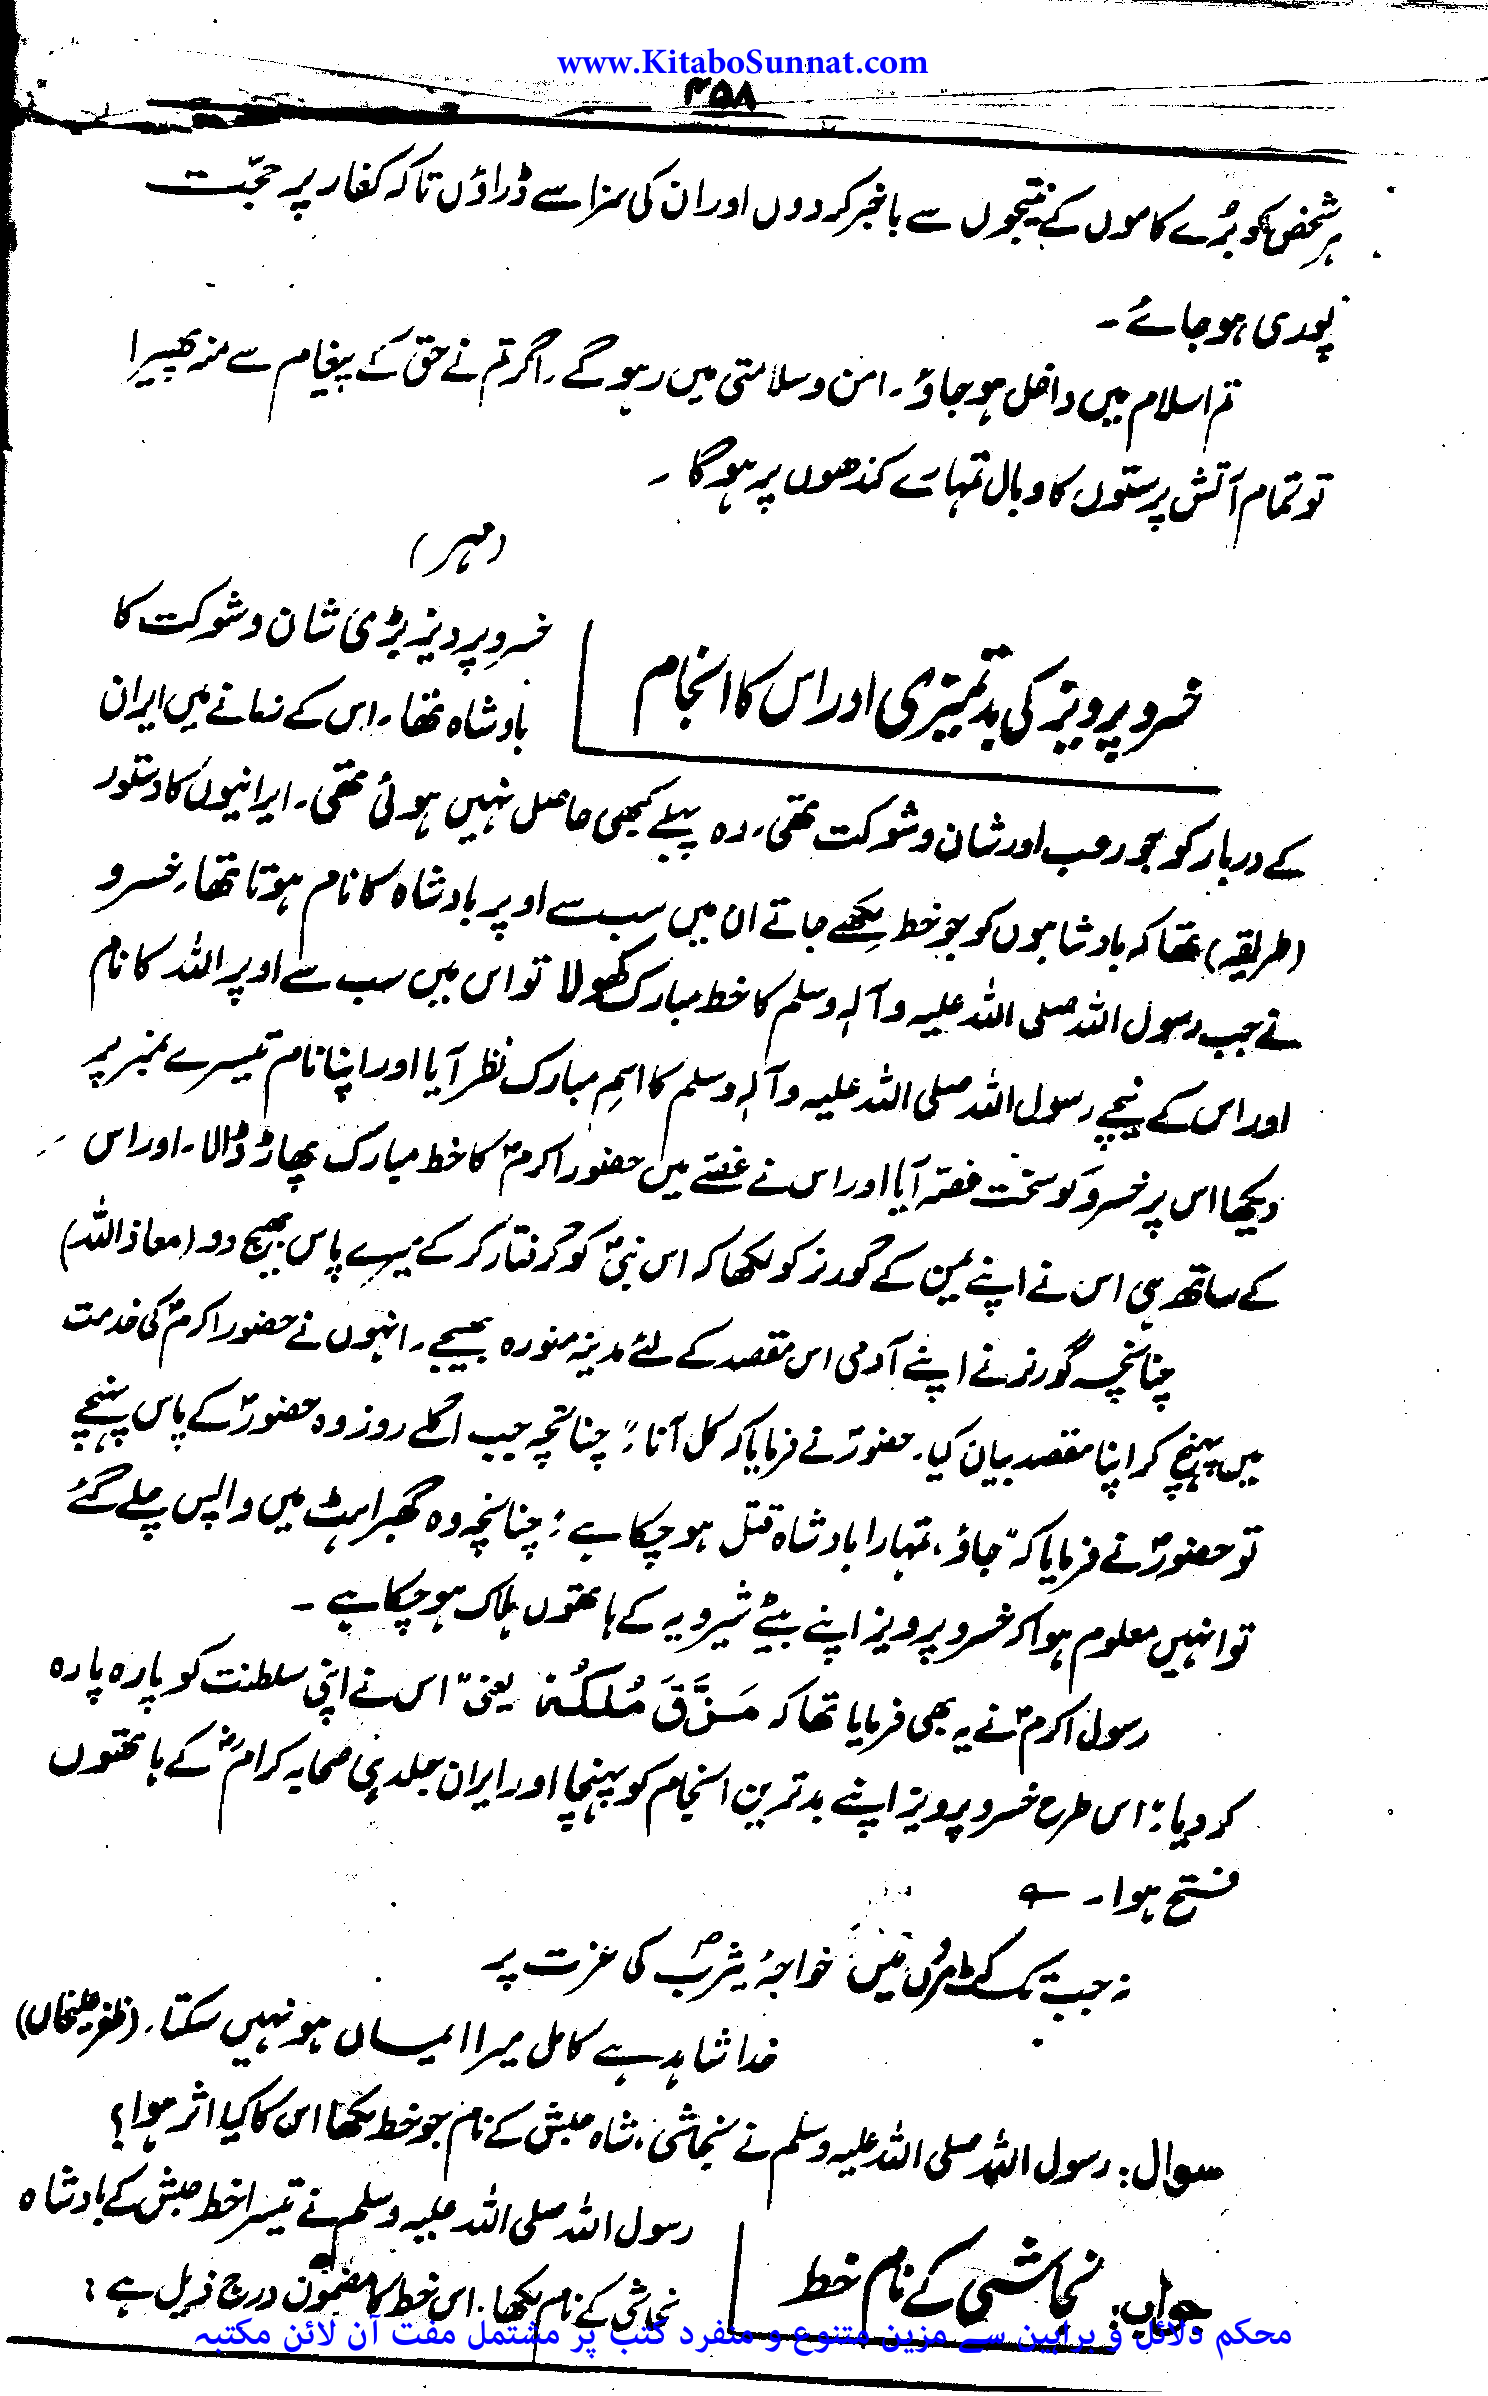 www.KitaboSunnat.com
۴۵۸
ہر شخص کو بُرے کاموں کے نتیجوں سے باخبر کر دوں اور ان کی سزا سے ڈراؤں تاکہ کفار پر حجّت
پوری ہو جائے۔
تم اسلام میں داخل ہو جاؤ۔ امن و سلامتی میں رہو گے۔ اگر تم نے حق کے پیغام سے منہ پھیرا
تو تمام آتش پرستوں کا وبال تمہارے کندھوں پر ہو گا۔
(مہر)
خسرو پرویز کی بدتمیزی اور اس کا انجام
خسرو پرویز بڑی شان و شوکت کا
بادشاہ تھا۔ اس کے زمانے میں ایران
کے دربار کو جو رعب اور شان و شوکت تھی، وہ پہلے کبھی حاصل نہیں ہوئی تھی۔ ایرانیوں کا دستور
(طریقہ) تھا کہ بادشاہوں کو جو خط لکھے جاتے ان میں سب سے اوپر بادشاہ کا نام ہوتا تھا۔ خسرو
نے جب رسول اللہ صلی اللہ علیہ وآلہٖ وسلم کا خط مبارک کھولا تو اس میں سب سے اوپر اللہ کا نام
اور اس کے نیچے رسول اللہ صلی اللہ علیہ وآلہٖ وسلم کا اسمِ مبارک نظر آیا اور اپنا نام تیسرے نمبر پر
دیکھا اس پر خسرو کو سخت غصّہ آیا اور اس نے غصّے میں حضور اکرمؐ کا خط مبارک پھاڑ ڈالا۔ اور اس
کے ساتھ ہی اس نے اپنے یمن کے گورنر کو لکھا کہ اس نبیؐ کو گرفتار کر کے میرے پاس بھیج دو (معاذ اللہ)
چنانچہ گورنر نے اپنے آدمی اس مقصد کے لئے مدینہ منورہ بھیجے۔ انہوں نے حضور اکرمؐ کی خدمت
میں پہنچ کر اپنا مقصد بیان کیا۔ حضورؐ نے فرمایا کہ کل آنا۔" چنانچہ جب اگلے روز وہ حضورؐ کے پاس پہنچے
تو حضورؐ نے فرمایا کہ "جاؤ، تمہارا بادشاہ قتل ہو چکا ہے۔" چنانچہ وہ گھبراہٹ میں واپس چلے گئے
تو انہیں معلوم ہوا کہ خسرو پرویز اپنے بیٹے شیرویہ کے ہاتھوں ہلاک ہو چکا ہے۔
رسول اکرمؐ نے یہ بھی فرمایا تھا کہ مَزَّقَ مُلکُہٗ یعنی "اس نے اپنی سلطنت کو پارہ پارہ
کر دیا۔" اس طرح خسرو پرویز اپنے بدترین انجام کو پہنچا اور ایران جلد ہی صحابہ کرامؓ کے ہاتھوں
فتح ہوا۔ ؎
نہ جب تک کٹ مروں میں خواجۂ یثربؐ کی عزت پر
خدا شاہد ہے کامل میرا ایماں ہو نہیں سکتا۔ (ظفر علیخاں)
سوال: رسول اللہ صلی اللہ علیہ وسلم نے نجاشی، شاہ حبش کے نام جو خط لکھا اس کا کیا اثر ہوا؟
جواب: نجاشی کے نام خط
رسول اللہ صلی اللہ علیہ وسلم نے تیسرا خط حبش کے بادشاہ
نجاشی کے نام لکھا۔ اس خط کا مضمون درج ذیل ہے:
محکم دلائل و براہین سے مزین متنوع و منفرد کتب پر مشتمل مفت آن لائن مکتبہ